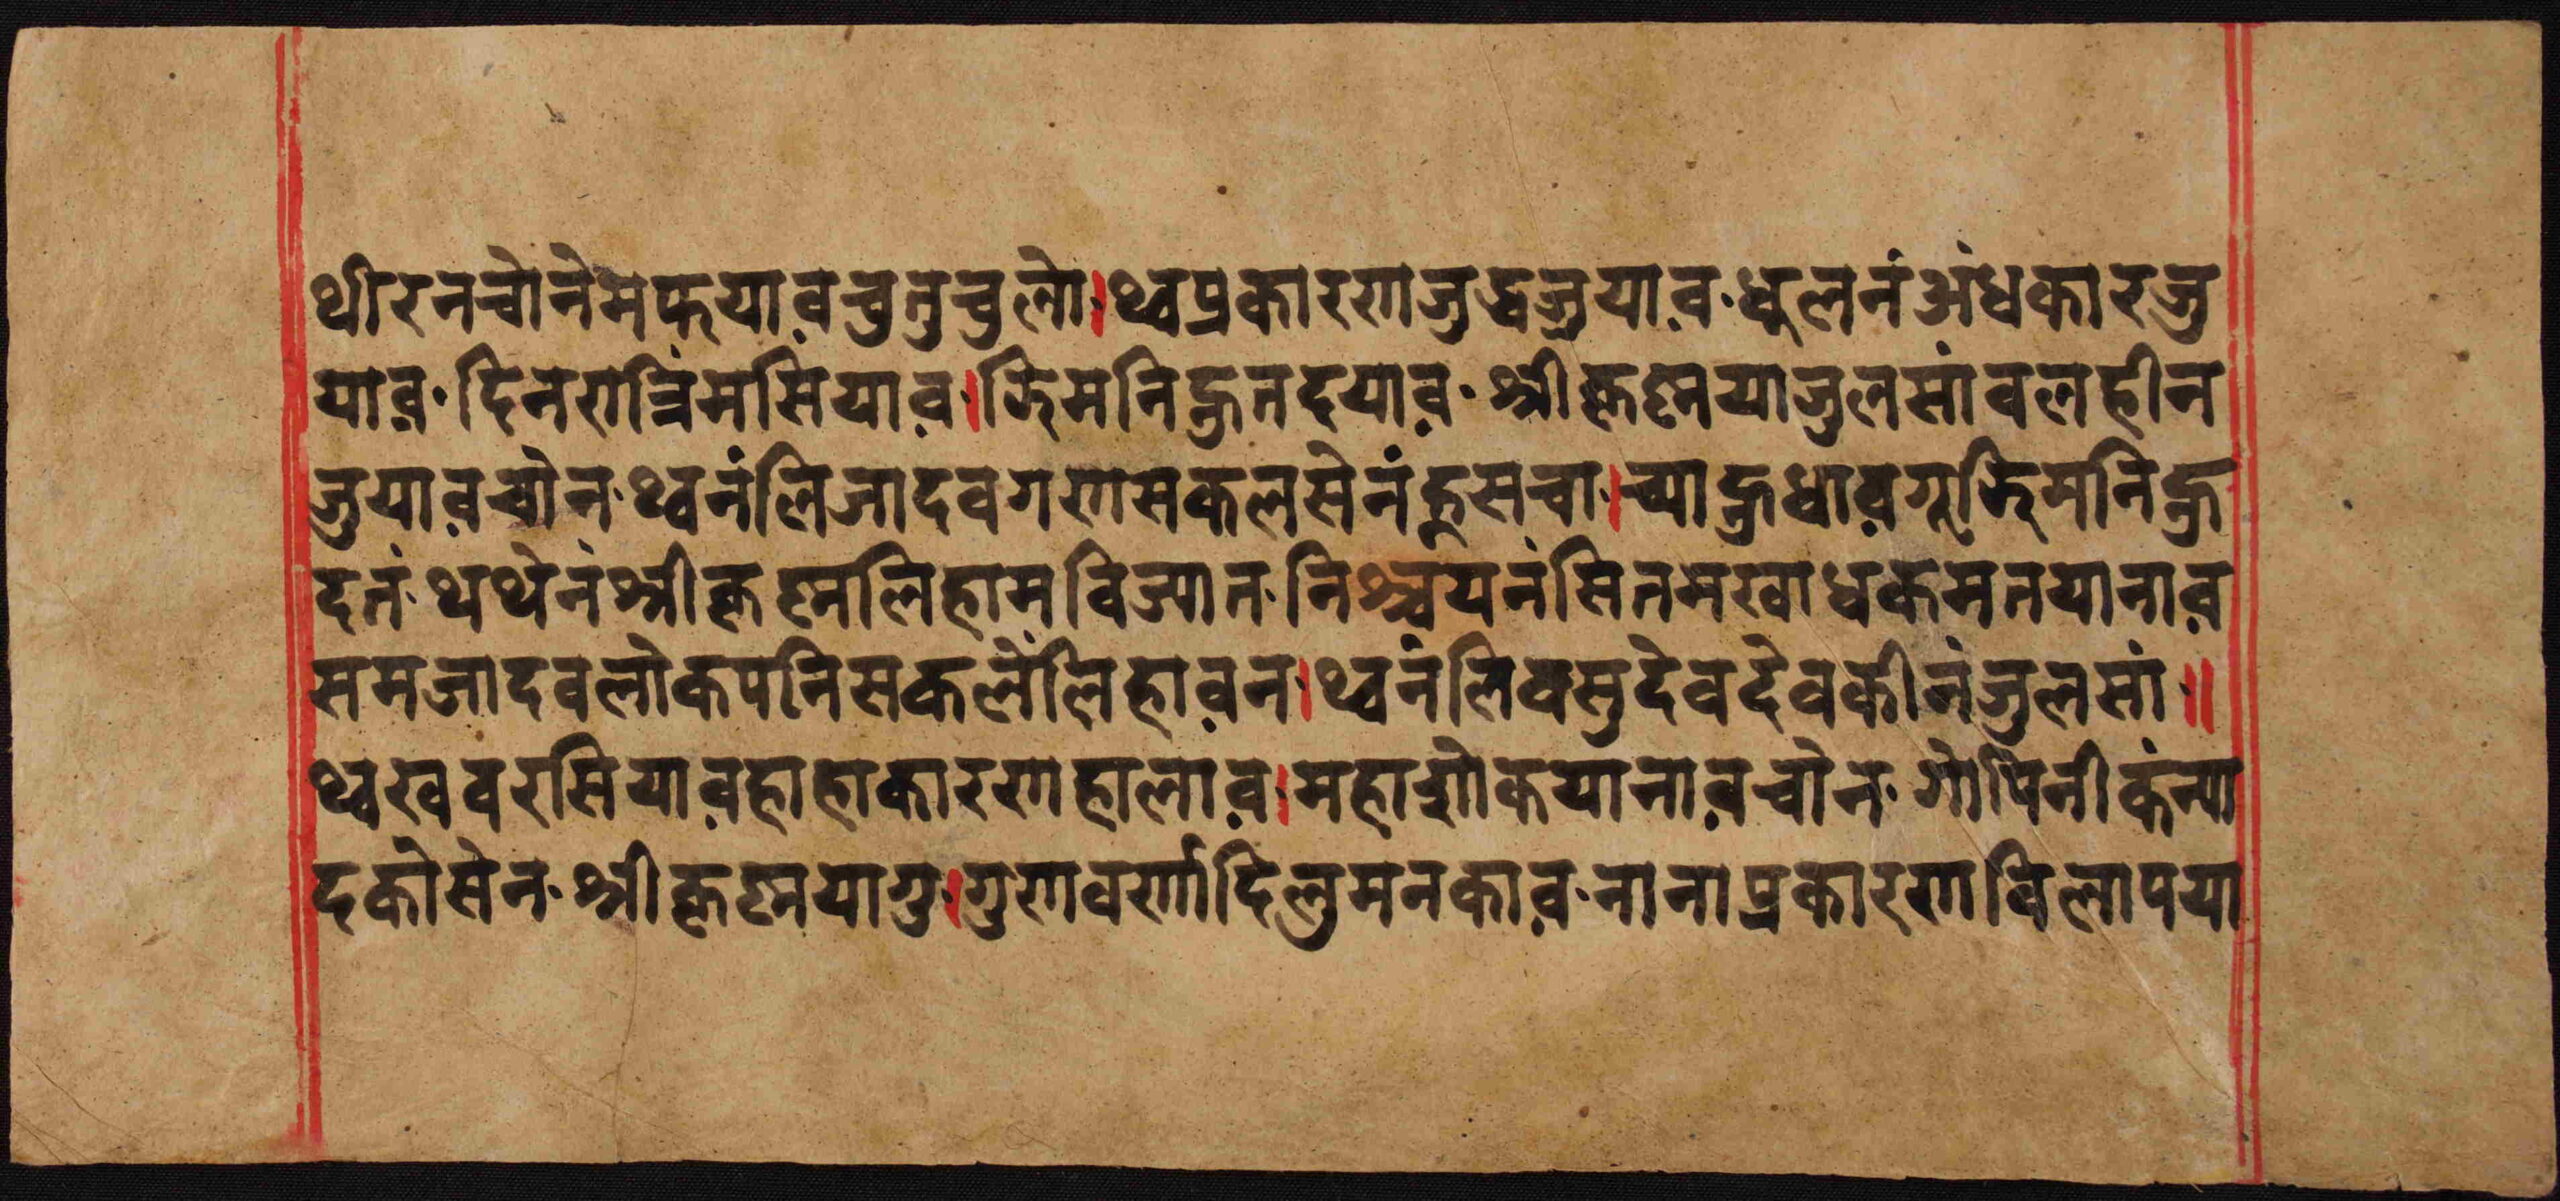 थीरनचोनेमफयाव़चुतुचुलो।थ्वप्रकारणजुद्धजुयाव़·धूलनंअंधकारजु
याव़·दिनरात्रिंमसिंयाव़।झिमनिह्नुतदयाव़·श्रीकृष्णयाजुलसांवलहीन
जुयाव़चोन·थ्वनंलिजादवगणसकलसेनंहूसचा।च्याह्नुधाव़गूझिमनिह्नु
दतं·थथेनंश्रीकृष्णलिहामविज्यात·निश्चयनंसितमखाधकमतयानाव़
समजादवलोकपनिसकलेंलिहाव़न।थ्वनंलिवसुदेवदेवकीनंजुलसां॥
थ्वखवरसियाव़हाहाकारणहालाव़।महाशोकयानाव़चोन·गोपिनीकंन्या
दकोसेन·श्रीकृष्णयागु।गुणवर्णादिलुमनकाव़·नानाप्रकारणविलापया